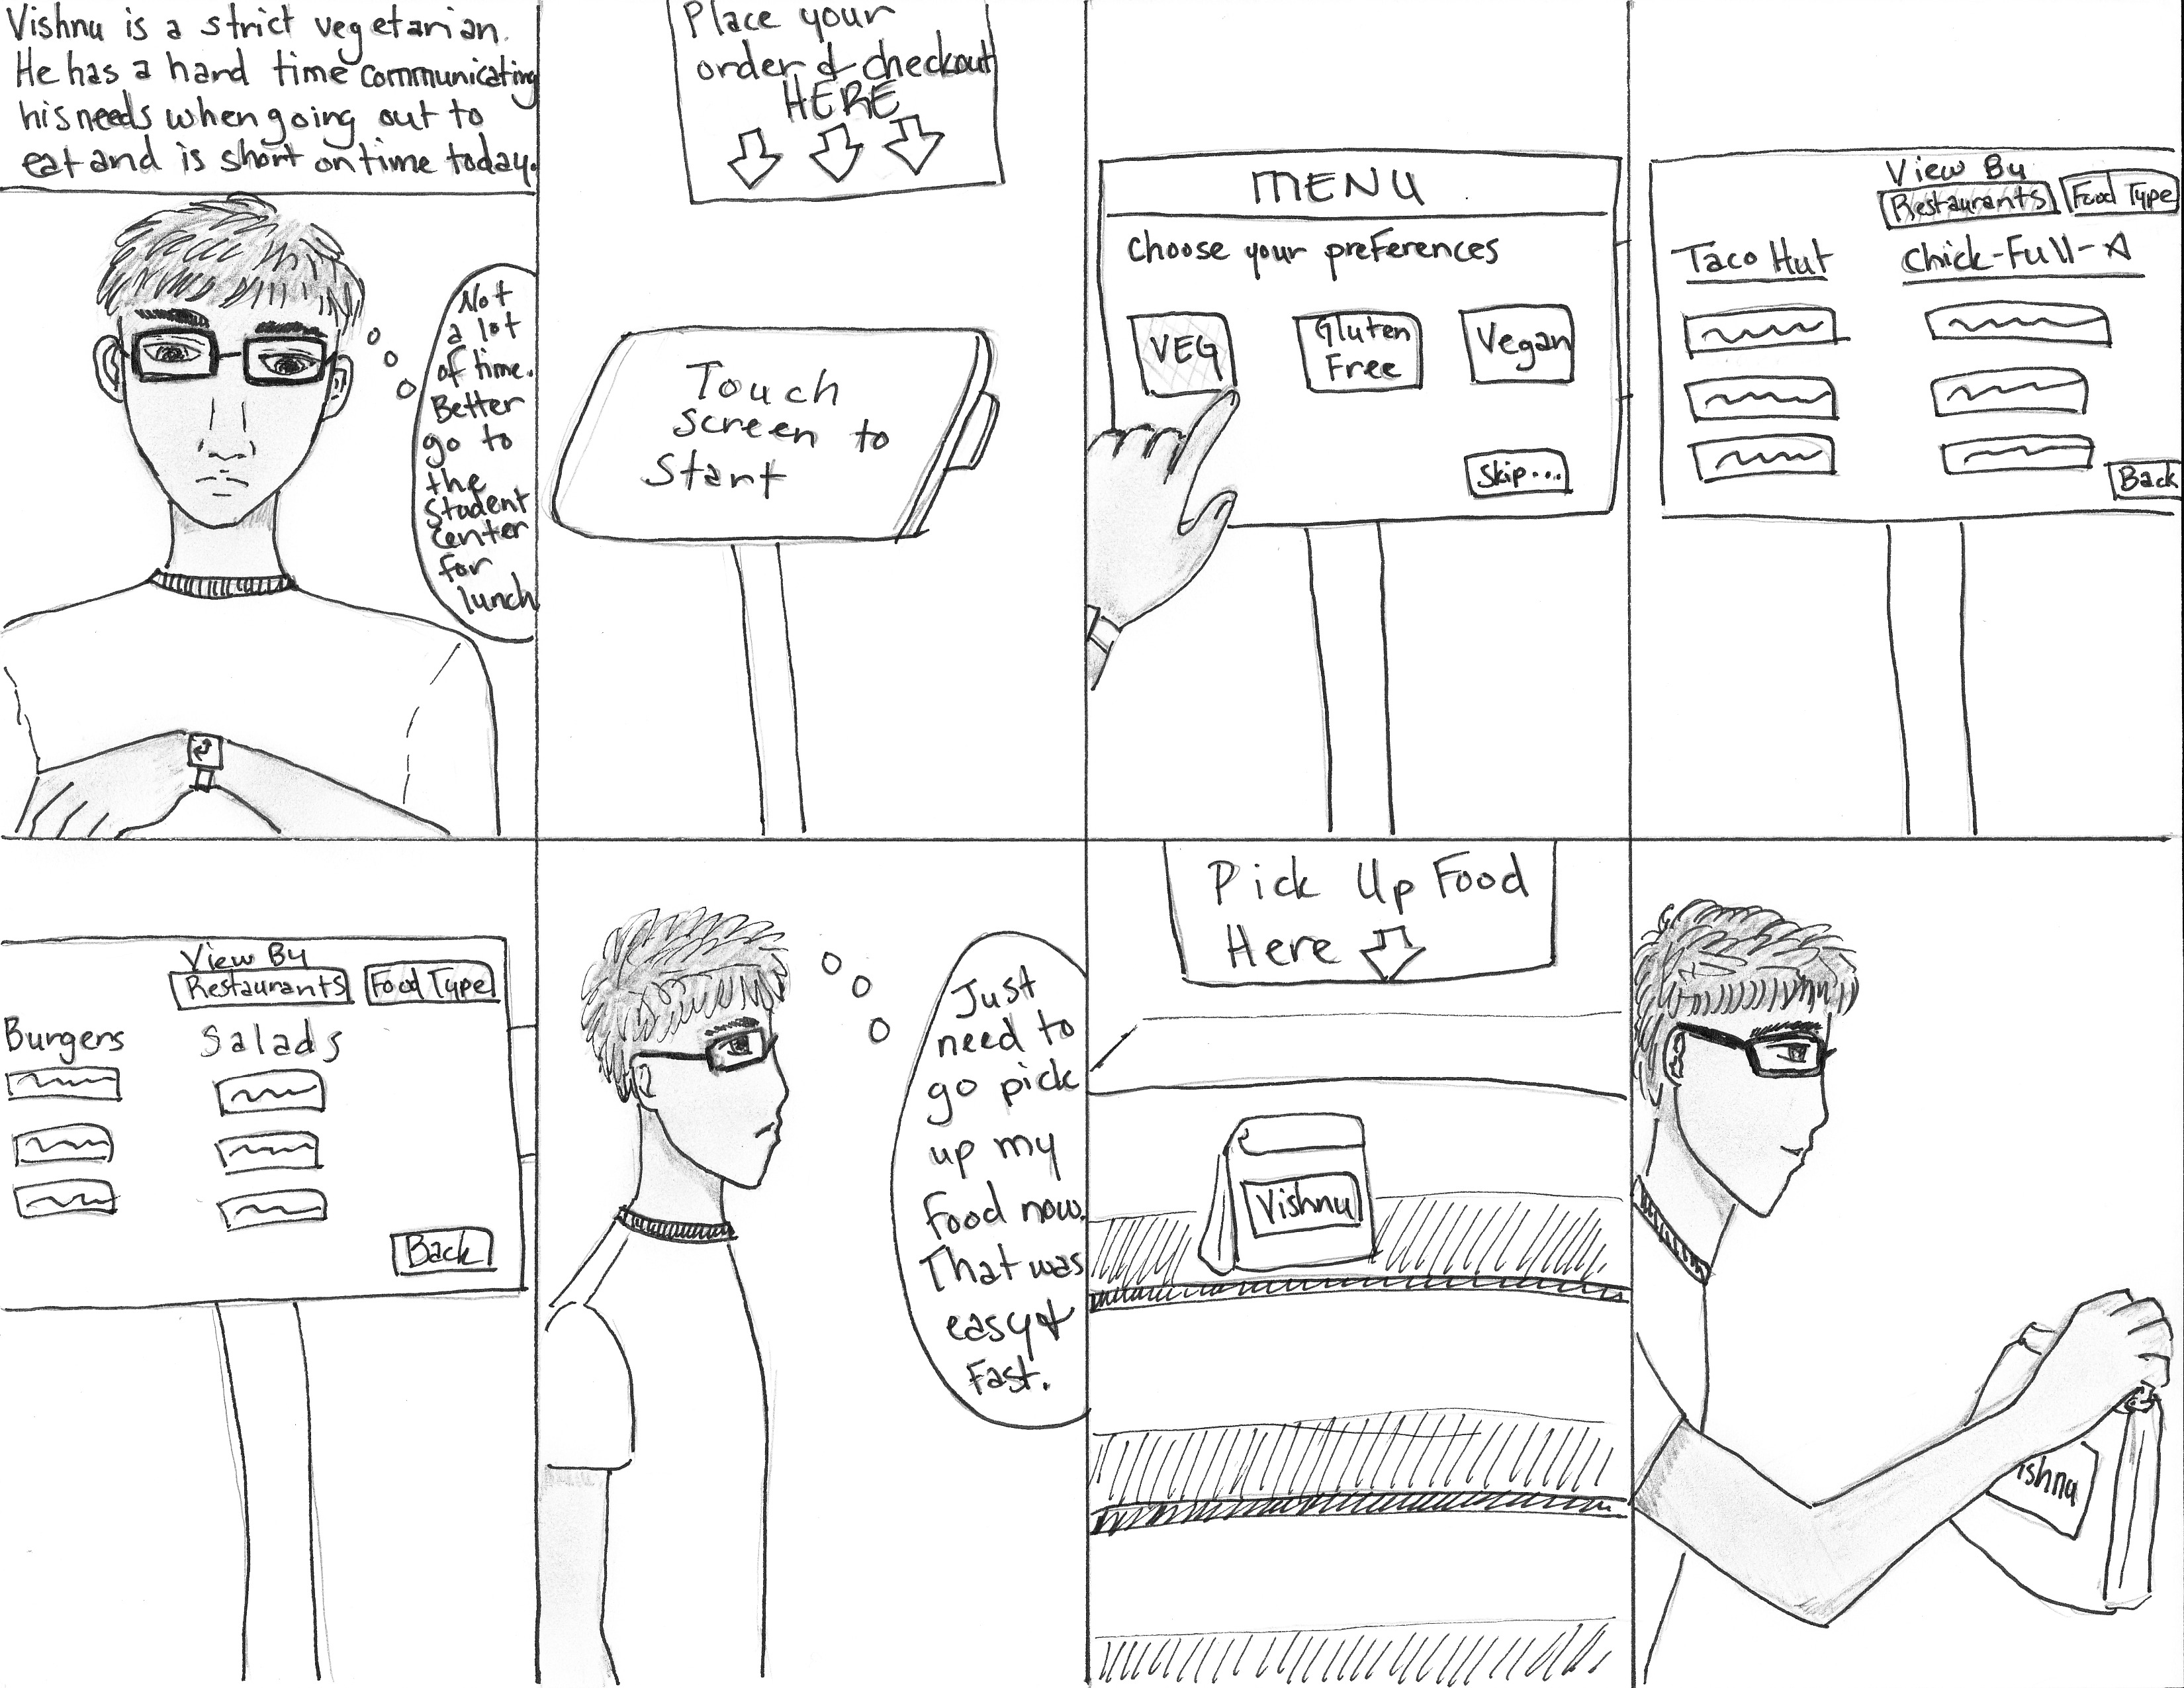 Vishnu is a strict vegetarian.
He has a hard time communicating
his needs when going out to
eat and is short on time today.
Not
a lot
of time.
Better
go to
the
Student
center
for
lunch
Place your
order & checkout
HERE
Touch
screen to
Start
MENU
Choose your preferences
VEG
Gluten
Free
Vegan
Skip....
View By
Restaurants
Food Type
Taco Hut
Chick-Full-A
Back
View By
Restaurants
Food Type
Burgers
Salads
Back
Just
need to
go pick
up my
Food now.
That was
easy &
Fast.
Pick Up Food
Here
Vishnu
ishnu